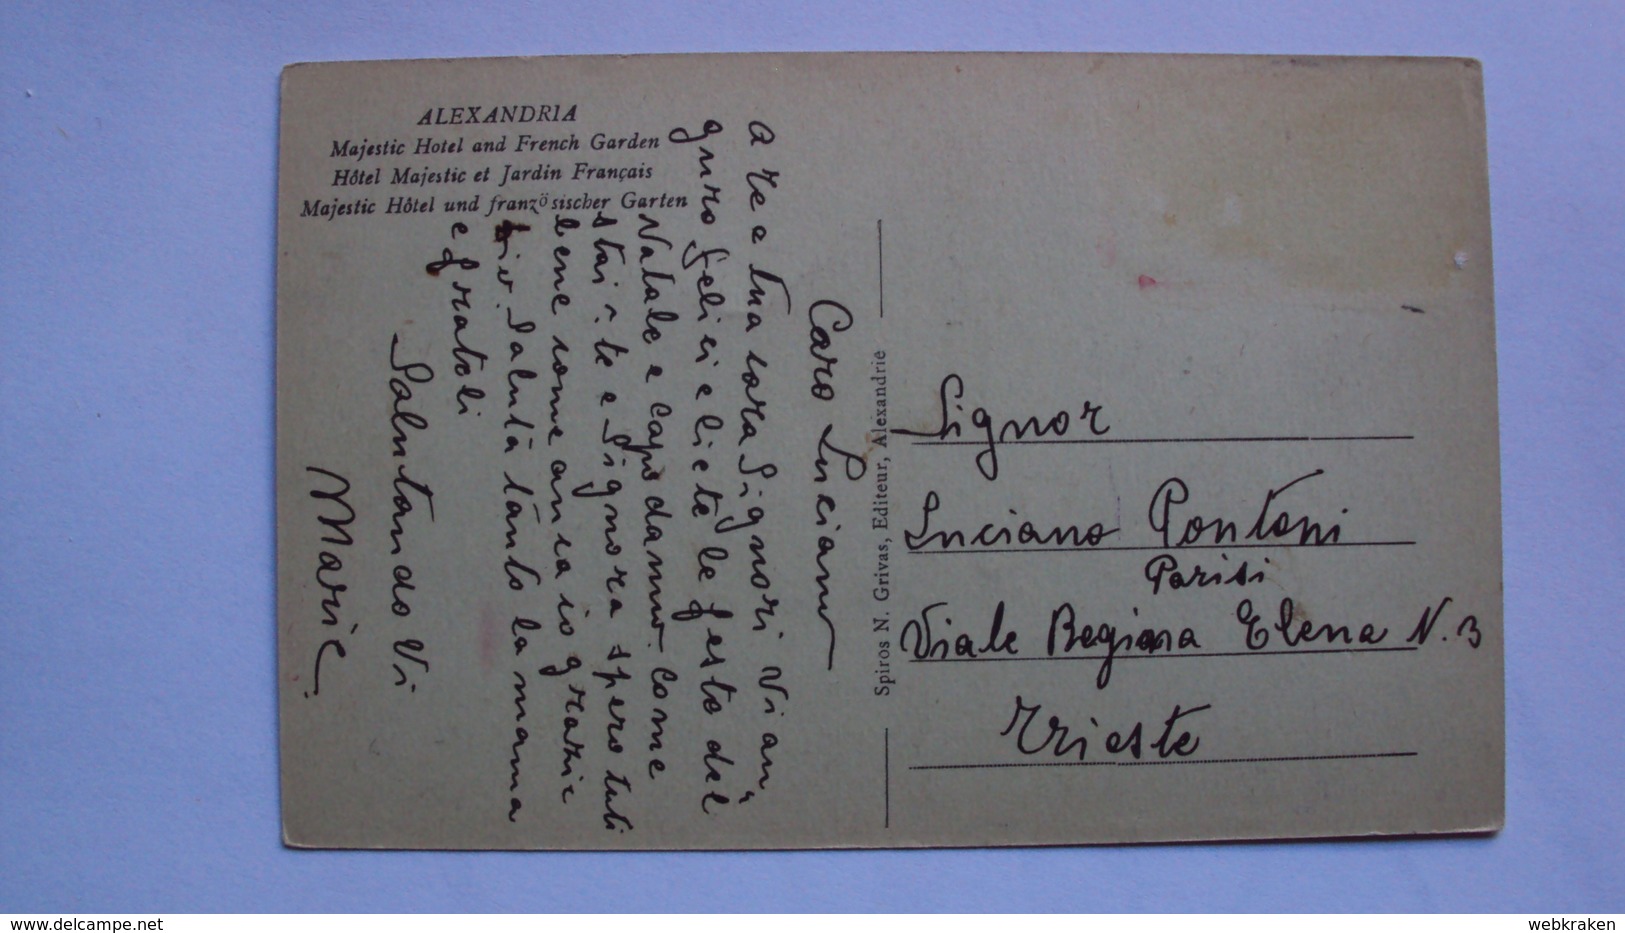 ALEXANDRIA
Majestic Hotel and French Garden
Hôtel Majestic et Jardin Français
Majestic Hôtel und französischer Garten
Caro Luciano
a te e tua cara Signori Vi au
guro felici e liete le feste del
Natale e Capo danno. Come
stai? te e Signora spero tuti
bene come ancia io grazie
Dio. Saluta tanto la mama
e frateli
Salutando Vi
Marie
Spiros N. Grivas, Editeur, Alexandrie
Signor
Luciano Pontoni
Parisi
Viale Regina Elena N. 3
Trieste
www.delcampe.net
webkraken